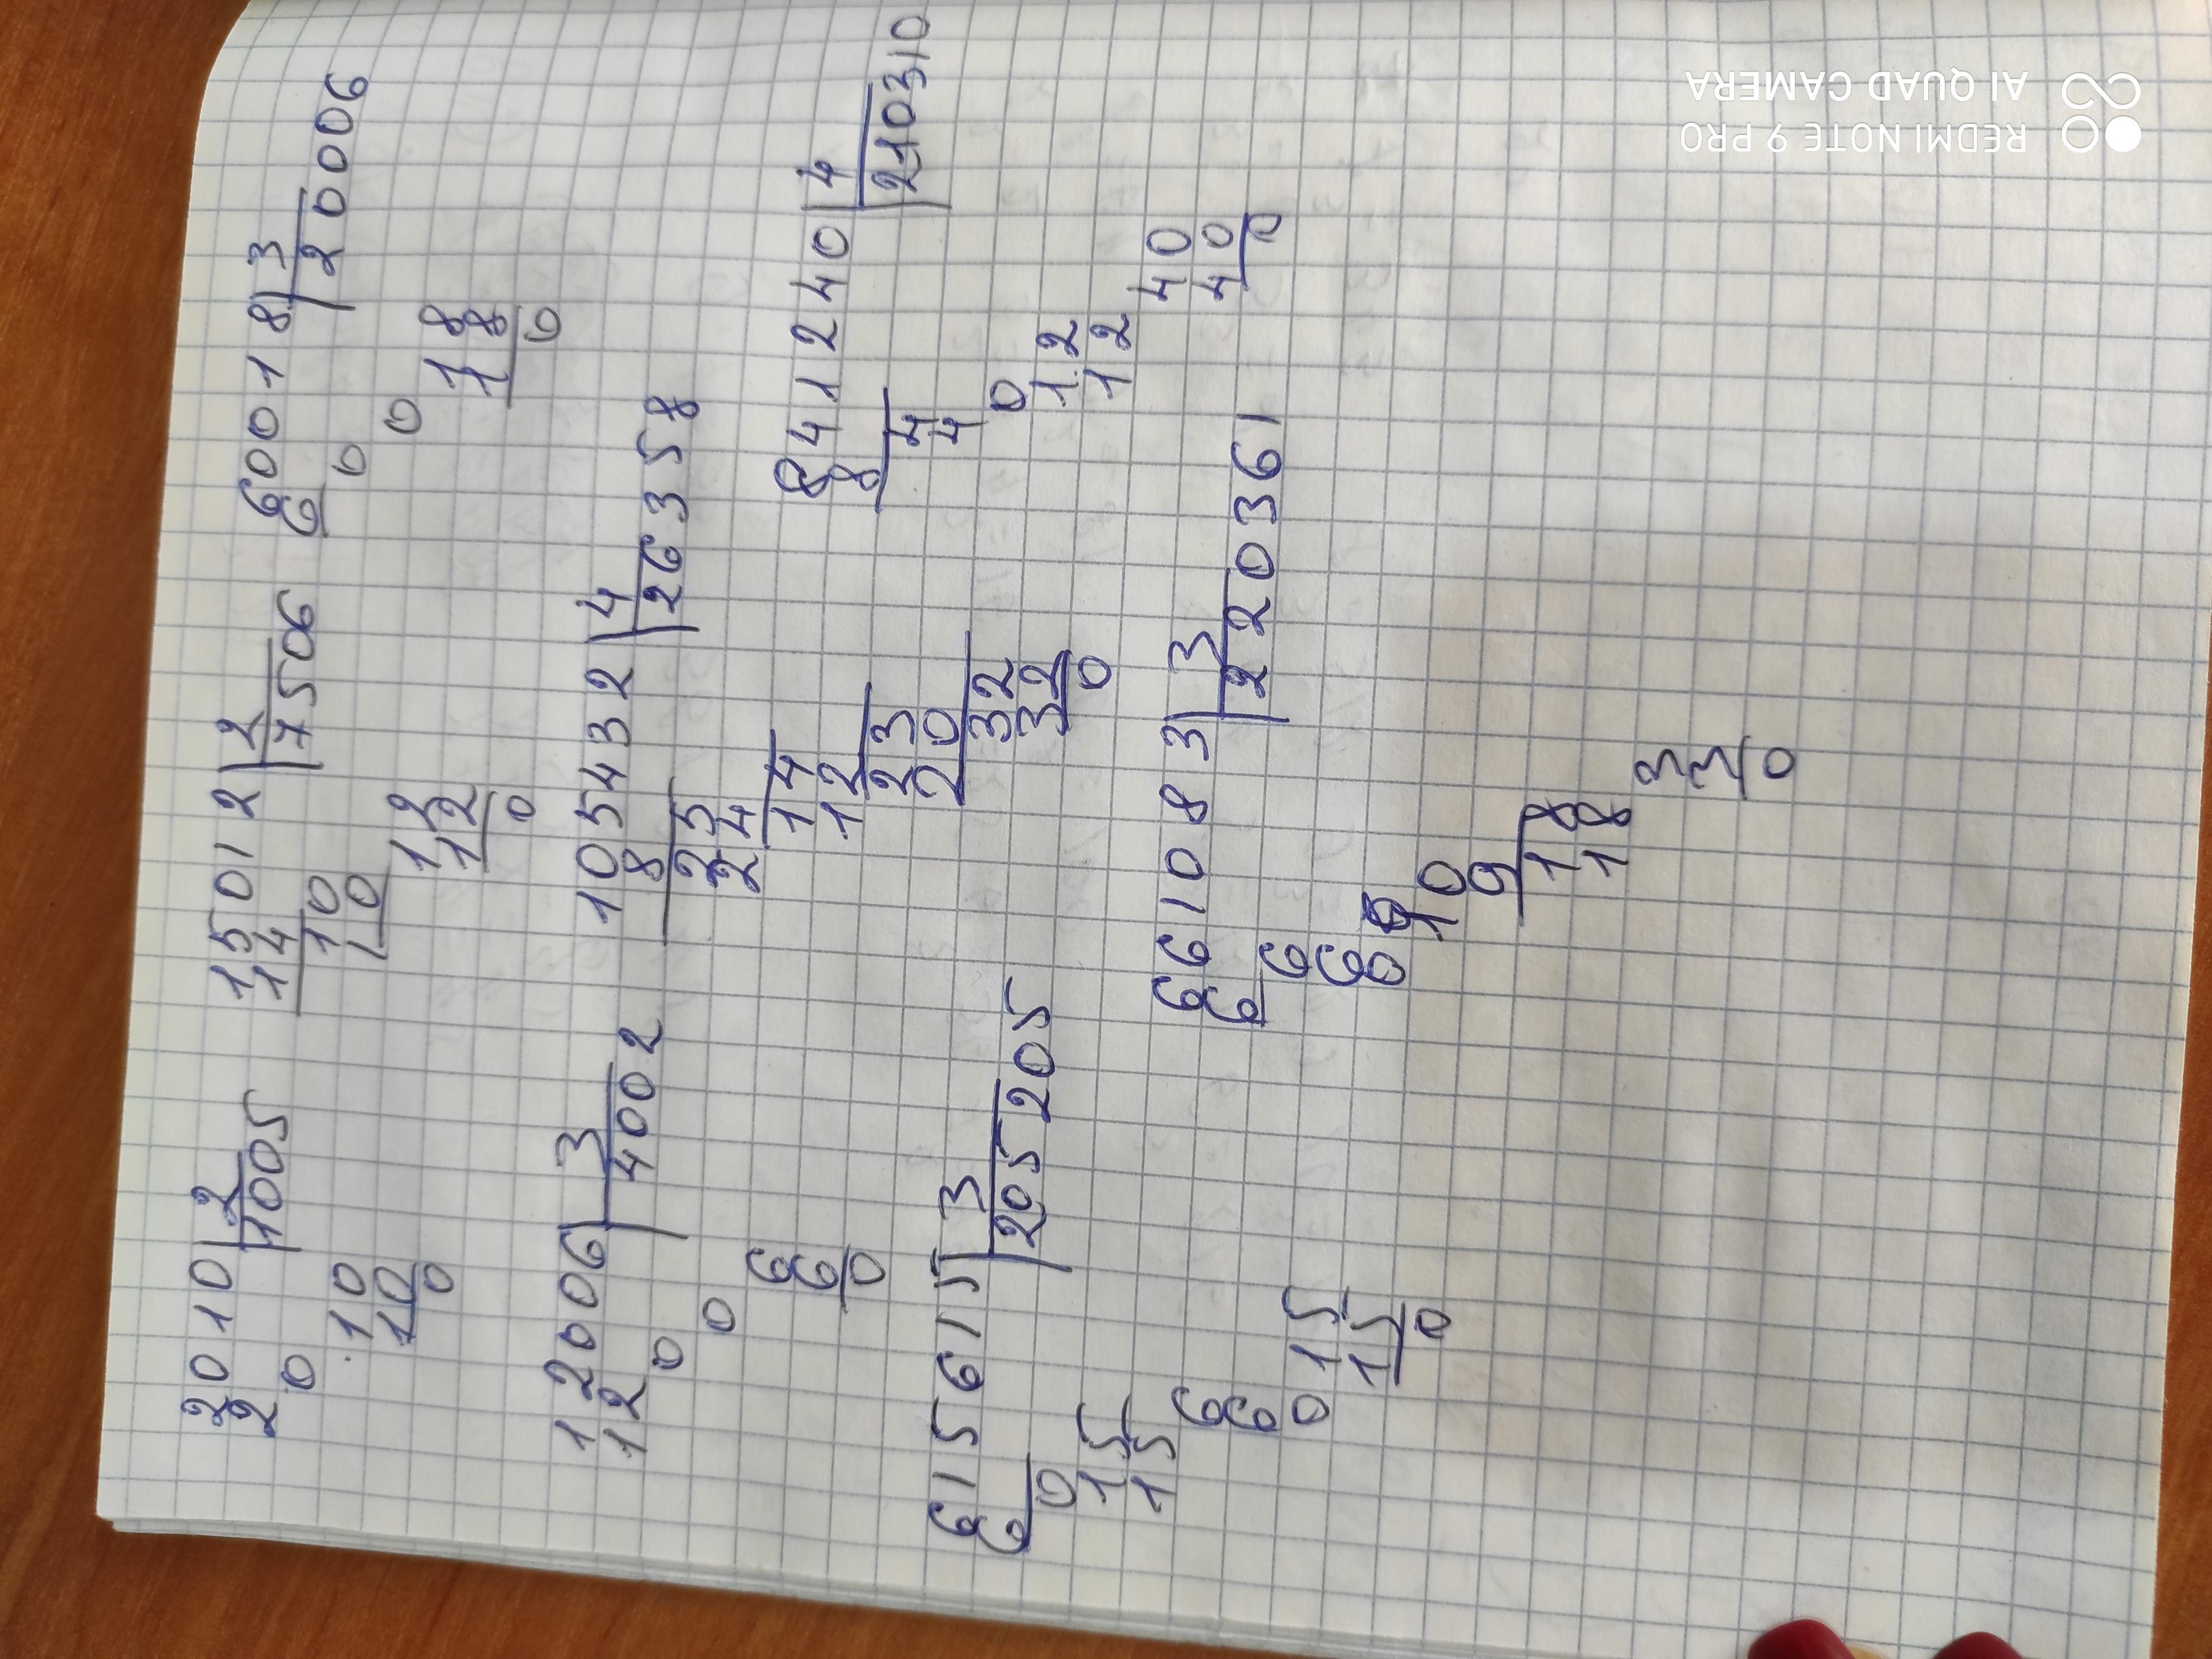 2010 2
2 1005
0
10
10
0
15012 2
14 7506
10
10
12
12
0
60018 3
6 20006
0
0
18
18
0
12006 3
12 4002
0
0
6
6
0
105432 4
8 26358
25
24
14
12
23
20
32
32
0
841240 4
8 210310
4
4
0
12
12
40
40
0
615615 3
6 205205
0
15
15
6
6
0
15
15
0
661083 3
6 220361
6
6
0
10
9
18
18
3
3
0
REDMI NOTE 9 PRO
AI QUAD CAMERA